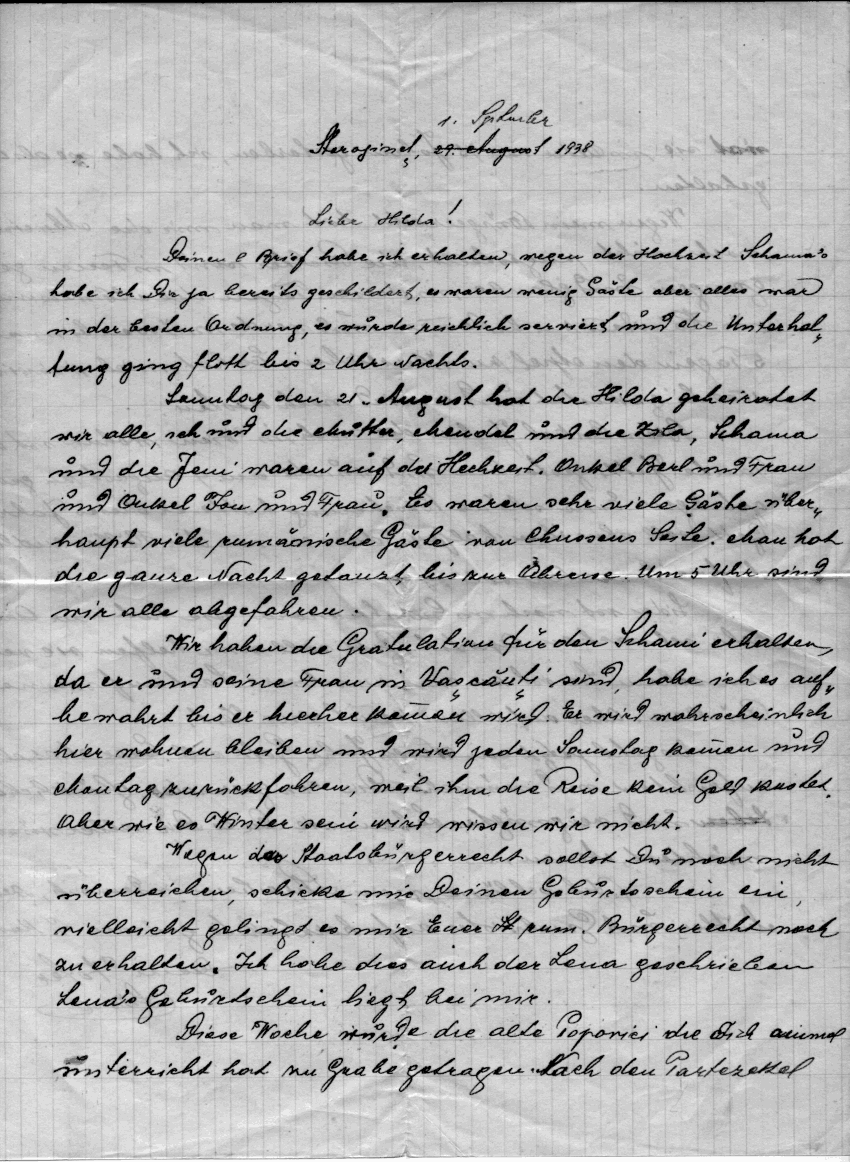 1. September
Storojineţ, 29. August 1938
Liebe Hilda!
Deinen l Brief habe ich erhalten, wegen der Hochzeit Schama's
habe ich Dir ja bereits geschildert, es waren wenig Gäste aber alles war
in der besten Ordnung, es wurde reichlich serviert und die Unterhal„
tung ging flott bis 2 Uhr Nachts.
Sonntag den 21. August hat die Hilda geheiratet
wir alle, ich und die Mutter, Mendel und die Zila, Schama
und die Jeni waren auf der Hochzeit. Onkel Berl und Frau
und Onkel Ion und Frau. Es waren sehr viele Gäste über„
haupt viele rumänische Gäste von Seite. Man hat
die ganze Nacht getanzt, bis zur Abreise. Um 5 Uhr sind
wir alle abgefahren.
Wir haben die Gratulation für den Schami erhalten,
da er und seine Frau in Vaşcăuţi sind, habe ich es auf„
bewahrt bis er hierher kom̅en wird. Er wird wahrscheinlich
hier wohnen bleiben und wird jeden Samstag kom̅en und
Montag zurückfahren, weil ihm die Reise kein Geld kostet.
Aber wie es Winter sein wird wissen wir nicht.
Wegen der Staatsbürgerrecht sollst Du noch nicht
überreichen, schicke mir Deinen Geburtsschein ein,
vielleicht gelingt es mir Euer St rum. Bürgerrecht noch
zu erhalten. Ich habe dies auch der Lena geschrieben
Lena's Geburtschein liegt bei mir.
Diese Woche wurde die alte Popovici die Dich einmal
unterricht hat zu Grabe getragen. Nach den Partezettel